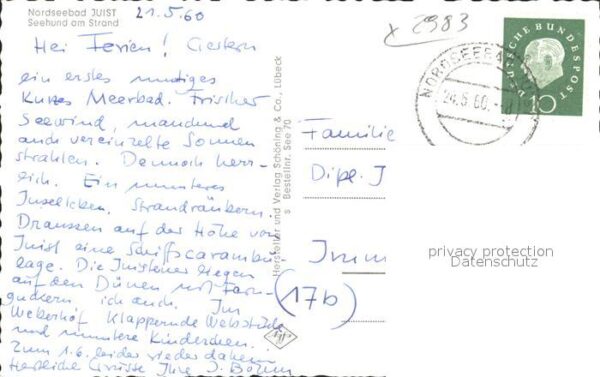 Nordseebad JUIST
Seehund am Strand
21.5.60
x 2983
Hei Ferien! Gestern
ein erstes mutiges
Kurzes Meerbad. Frischer
Seewind, manchmal
auch vereinzelte Sonnen
strahlen. Dennoch herr-
lich. Ein munteres
Inselleben. Strandräubern.
Draussen auf der Höhe von
Juist eine Schiffscarambo
lage. Die Juistener liegen
auf den Dünen mit Fern-
guckern ich auch. Im
Weberhof Klappernde Webstühle
und muntere Kinderchen.
Zum 1.6. leider wieder daheim
Herzliche Grüsse Ihre J.
Hersteller und Verlag Schöning & Co., Lübeck
s Bestellnr. See 70
DEUTSCHE BUNDESPOST
10
NORDSEEBAD
24.5.60.
Familie
Dipl. J
Imm
(17b)
privacy protection
Datenschutz